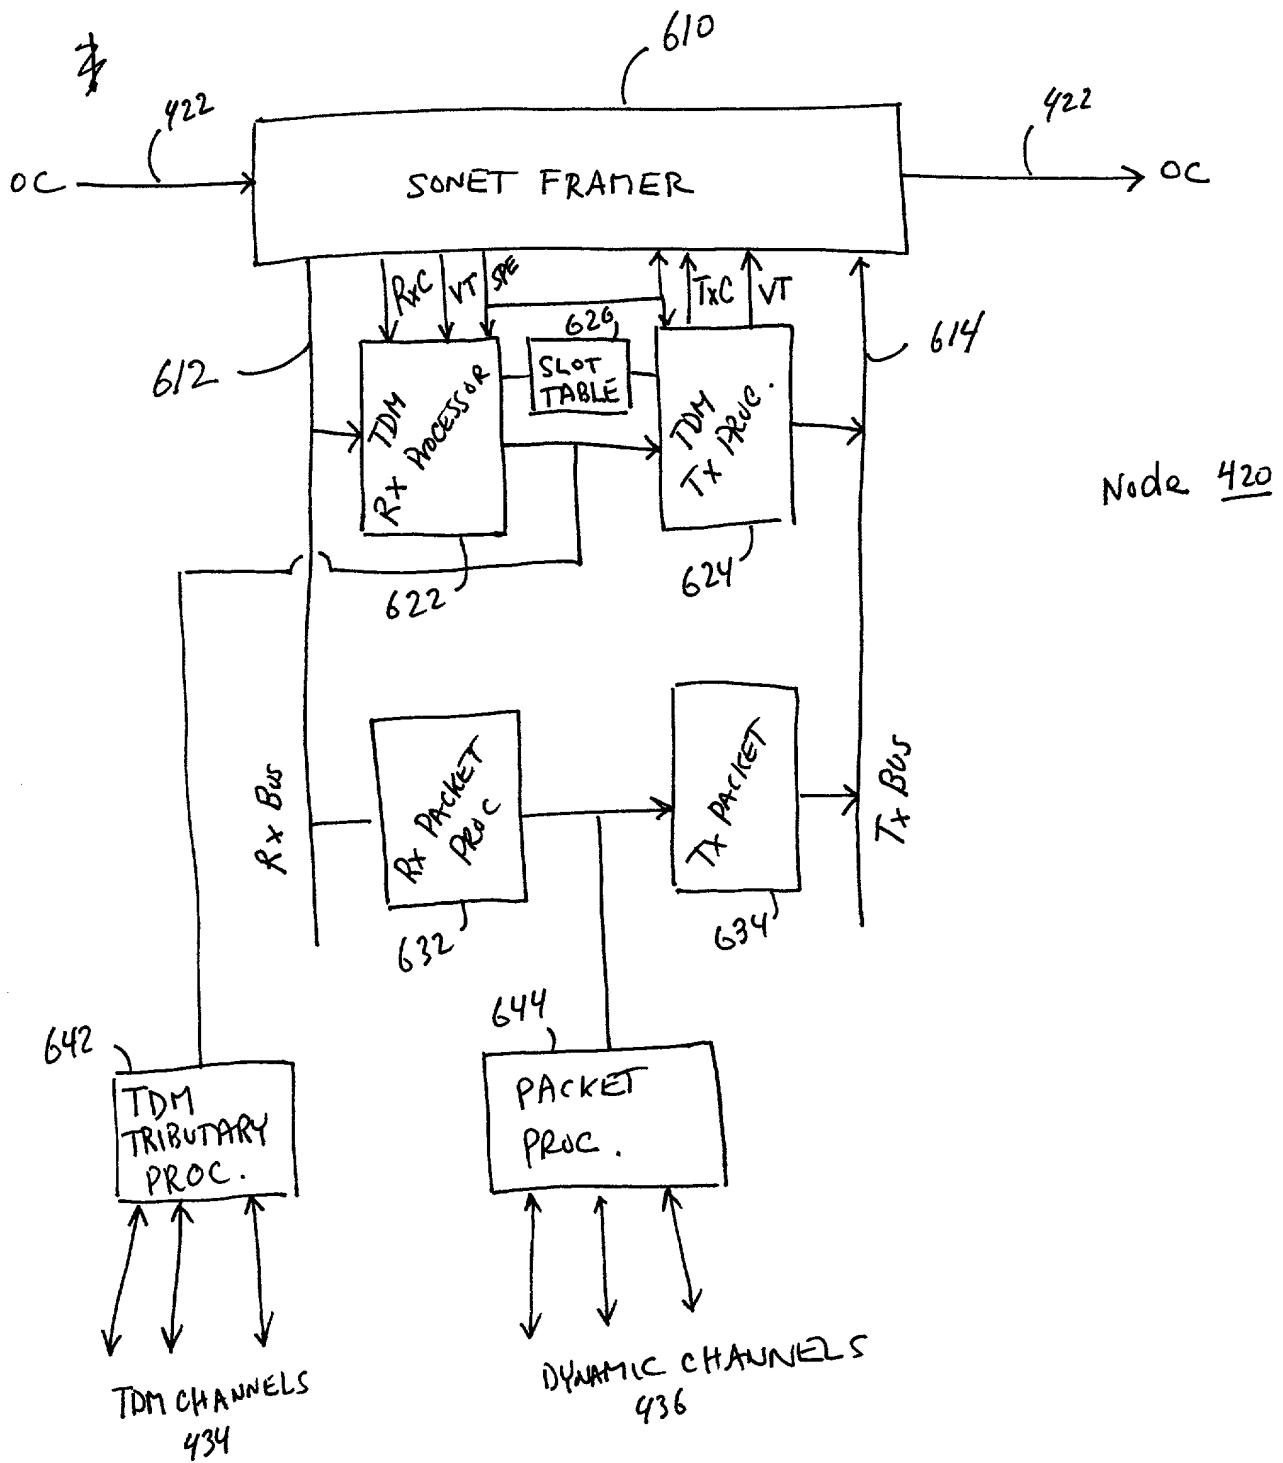 610
422
422
OC
SONET FRAMER
OC
RxC
VT
SPE
TxC
VT
626
612
614
SLOT
TABLE
TDM
RX PROCESSOR
TDM
TX PROC.
Node 420
622
624
Rx BUS
Rx PACKET
PROC
TX PACKET
Tx BUS
632
634
642
644
TDM
TRIBUTARY
PROC.
PACKET
PROC.
TDM CHANNELS
434
DYNAMIC CHANNELS
436